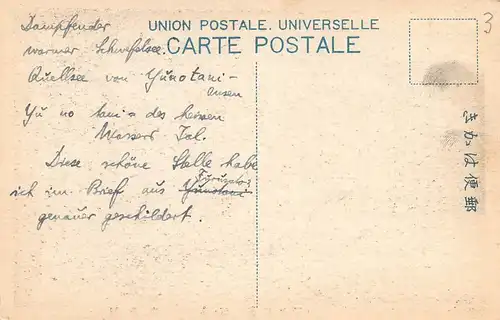 UNION POSTALE. UNIVERSELLE
CARTE POSTALE
Dampfender
warmer Schwefelsee.
Quellsee von Yunotani-
onsen
Yu no tani = des heissen
Wassers Tal.
Diese schöne Stelle habe
ich im Brief aus Yunotani
genauer geschildert.
3
きかは便郵